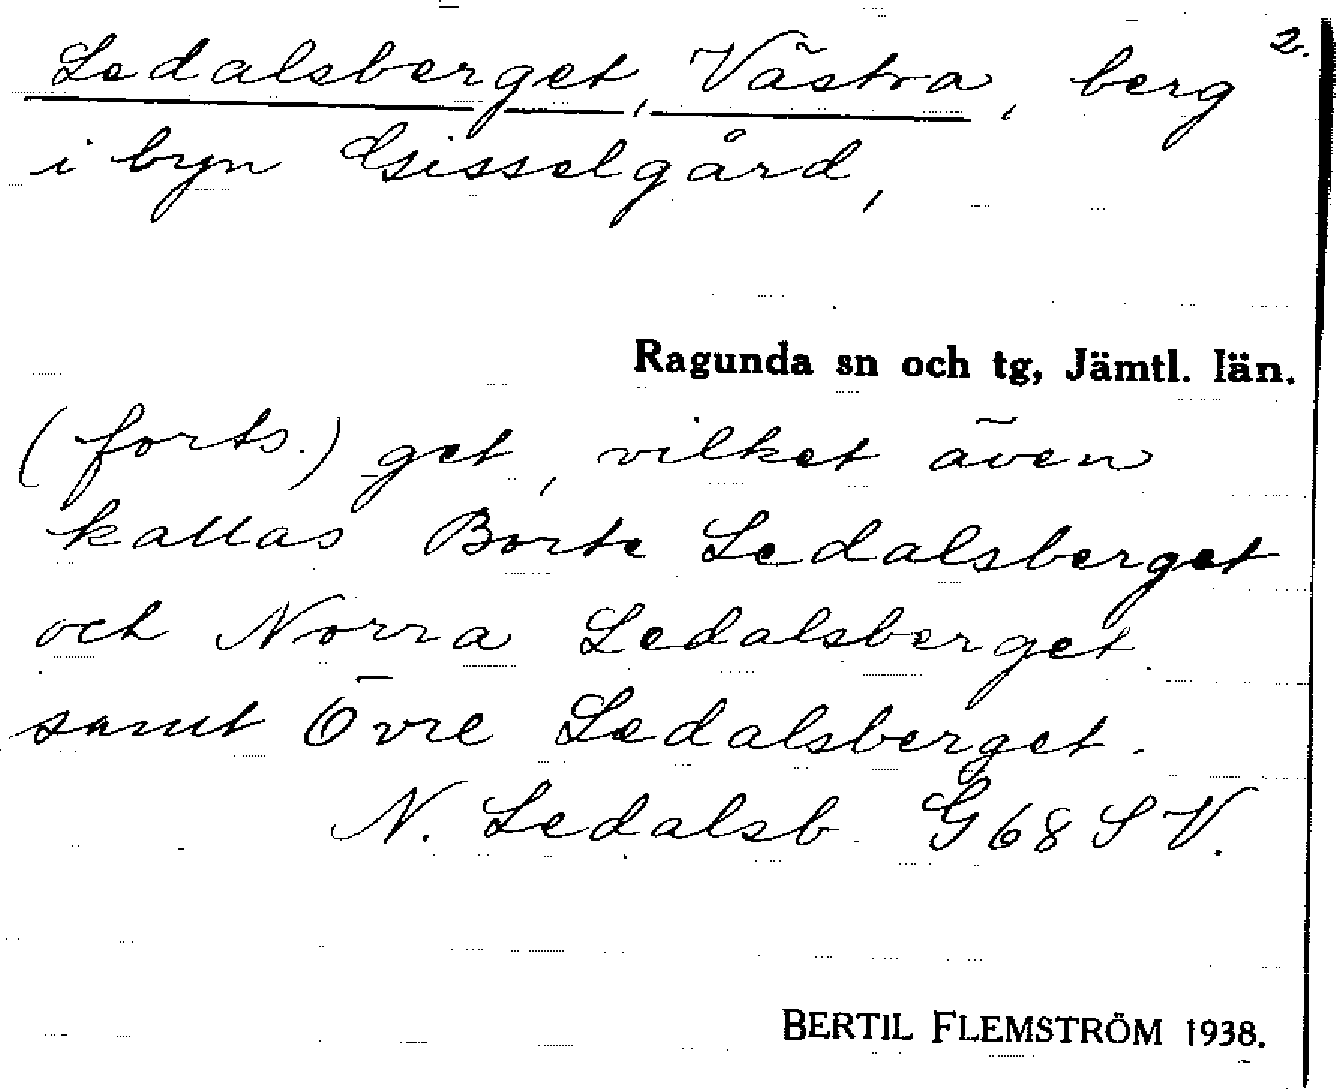 2.
Ledalsberget, Västra, berg
i byn Gisselgård,
Ragunda sn och tg, Jämtl. län.
(forts.) get, vilket även
kallas Borte Ledalsberget
och Norra Ledalsberget
samt Övre Ledalsberget.
N. Ledalsb G68SV.
BERTIL FLEMSTRÖM 1938.